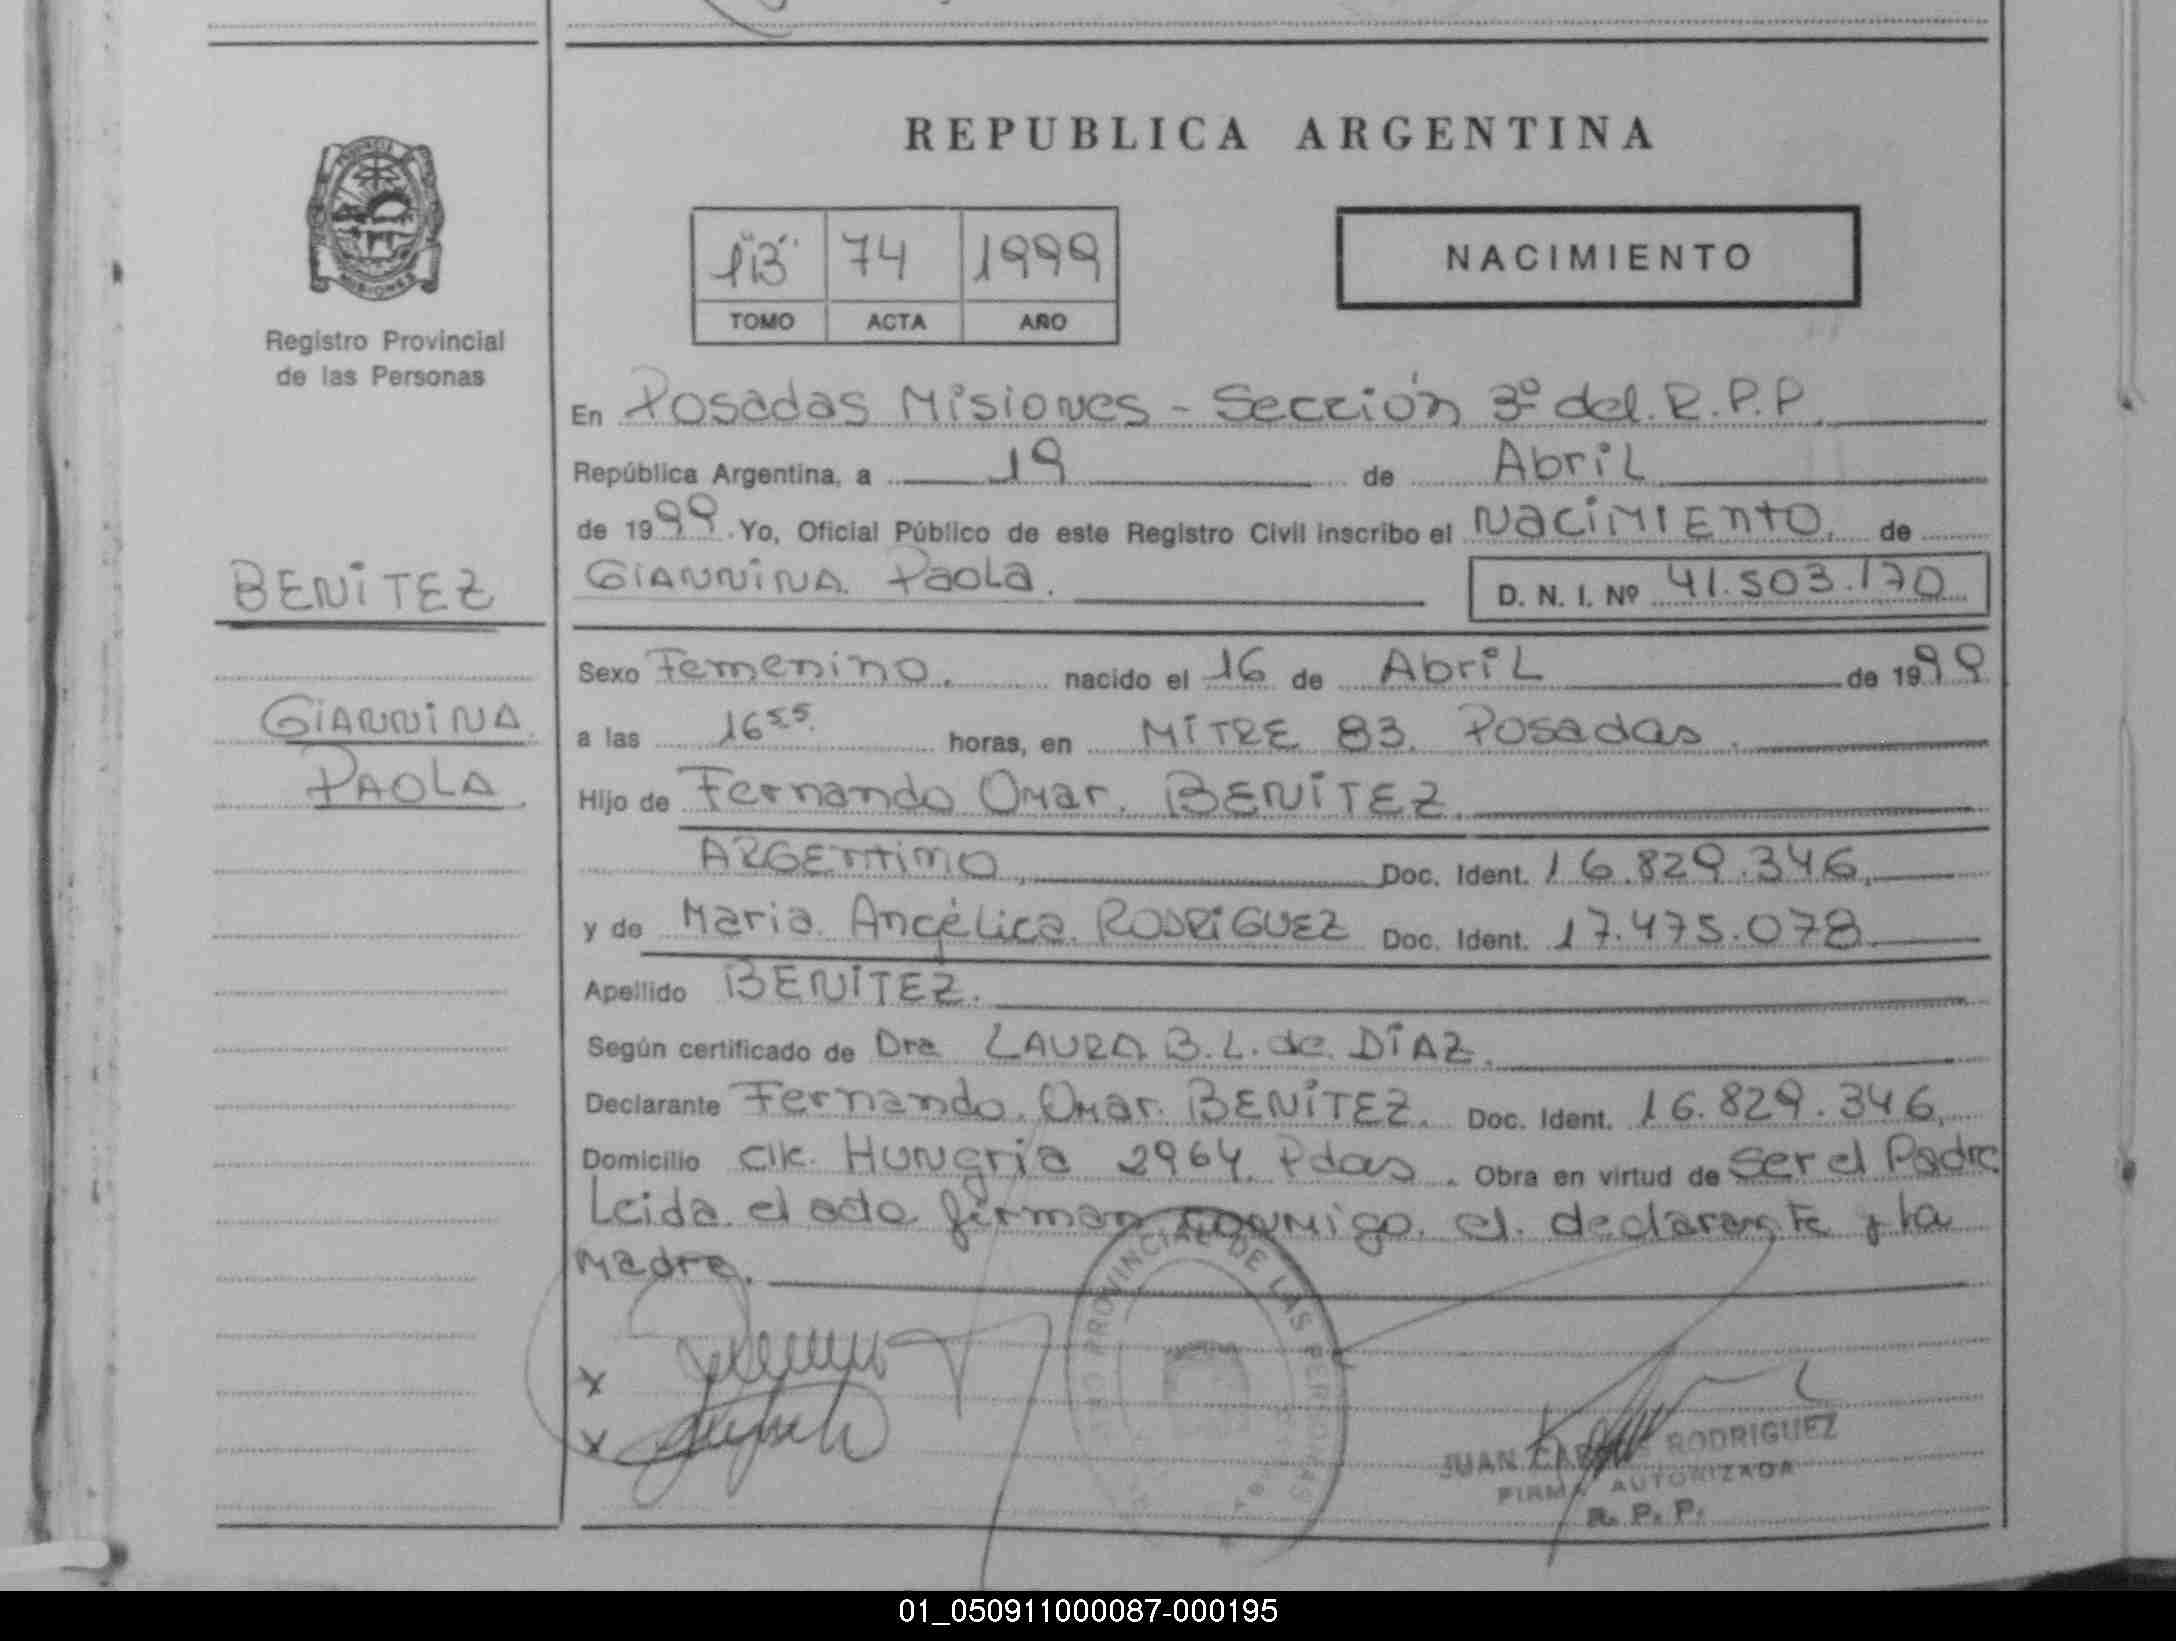 REPUBLICA ARGENTINA
Registro Provincial
de las Personas
1"B" 74 1999
TOMO ACTA AÑO
NACIMIENTO
En Posadas Misiones - Sección 3º del. R.P.P.
República Argentina, a 19 de Abril
de 1999. Yo, Oficial Público de este Registro Civil inscribo el NACIMIENTO, de
BENITEZ
GIANNINA Paola.
D. N. I. Nº 41.503.170
Sexo Femenino. nacido el 16 de Abril de 1999
GIANNINA
a las 16 55. horas, en MITRE 83. Posadas.
PAOLA.
Hijo de Fernando Omar. BENITEZ.
ARGENTINO, Doc. Ident. 16.829.346,
y de Maria Angélica RODRIGUEZ Doc. Ident. 17.475.078
Apellido BENITEZ.
Según certificado de Dra LAURA B.L. de DIAZ.
Declarante Fernando Omar. BENITEZ. Doc. Ident. 16.829.346,
Domicilio clle. Hungria 2964, Pdas. Obra en virtud de ser el Padre
Leida el acta firman conmigo el declarante y la
Madre.
PROVINCIAL DE LAS PERSONAS
x
x
JUAN CARLOS RODRIGUEZ
FIRMA AUTORIZADA
R. P. P.
01_050911000087-000195